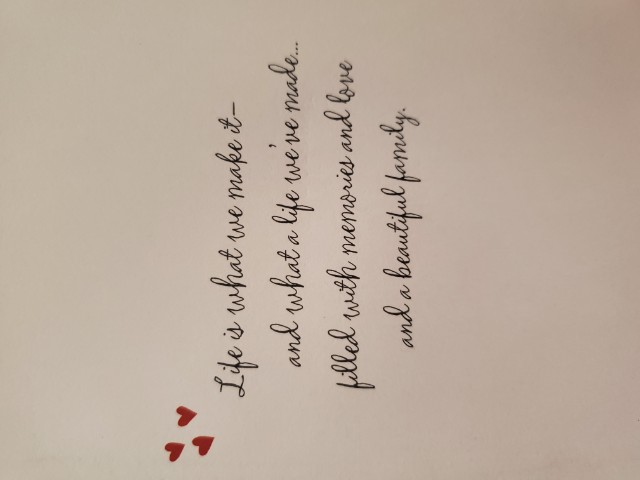 Life is what we make it—
and what a life we've made...
filled with memories and love
and a beautiful family.